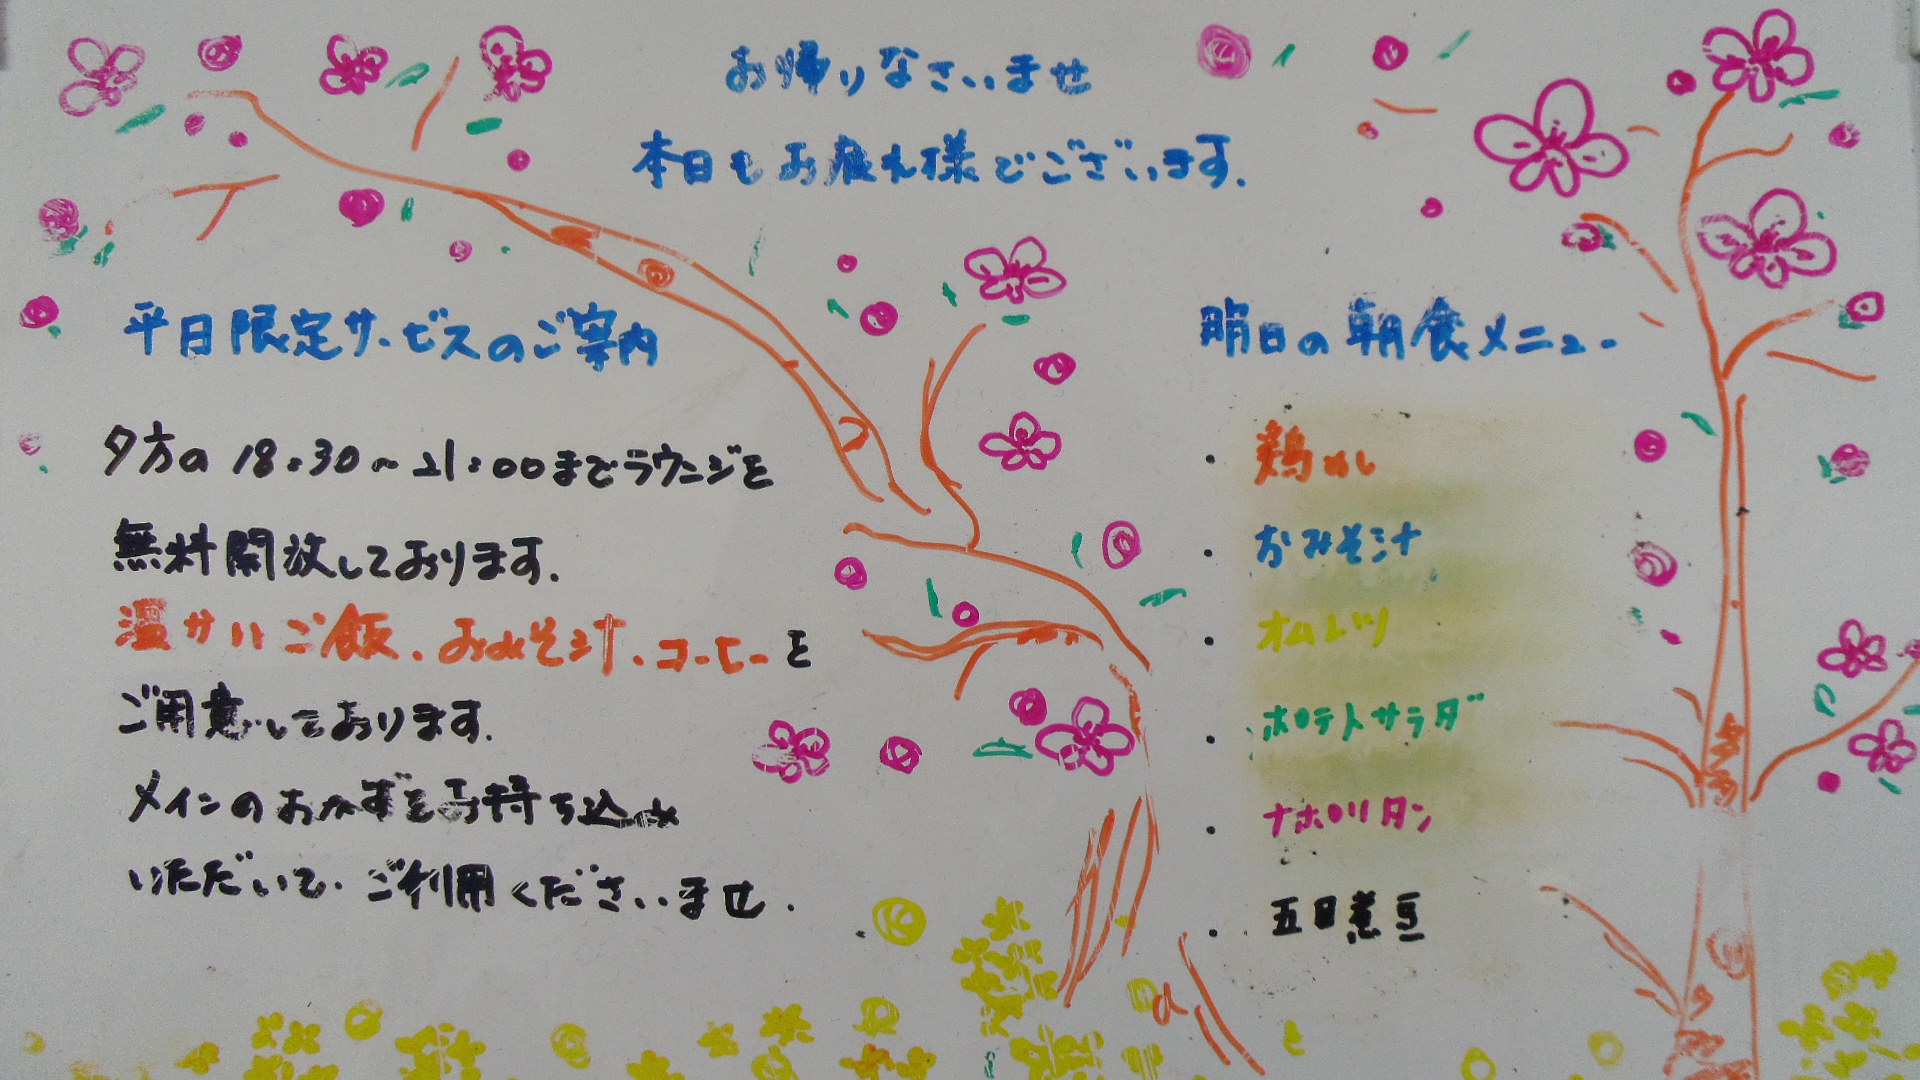 お帰りなさいませ
本日もお疲れ様でございます.
平日限定サービスのご案内
夕方の18:30~21:00までラウンジを
無料開放しております.
温かいご飯.おみそ汁.コーヒーを
ご用意しております.
メインのおかずをお持ち込み
いただいて.ご利用くださいませ.
明日の朝食メニュー
・鶏めし
・おみそ汁
・オムレツ
・ポテトサラダ
・ナポリタン
・五目煮豆